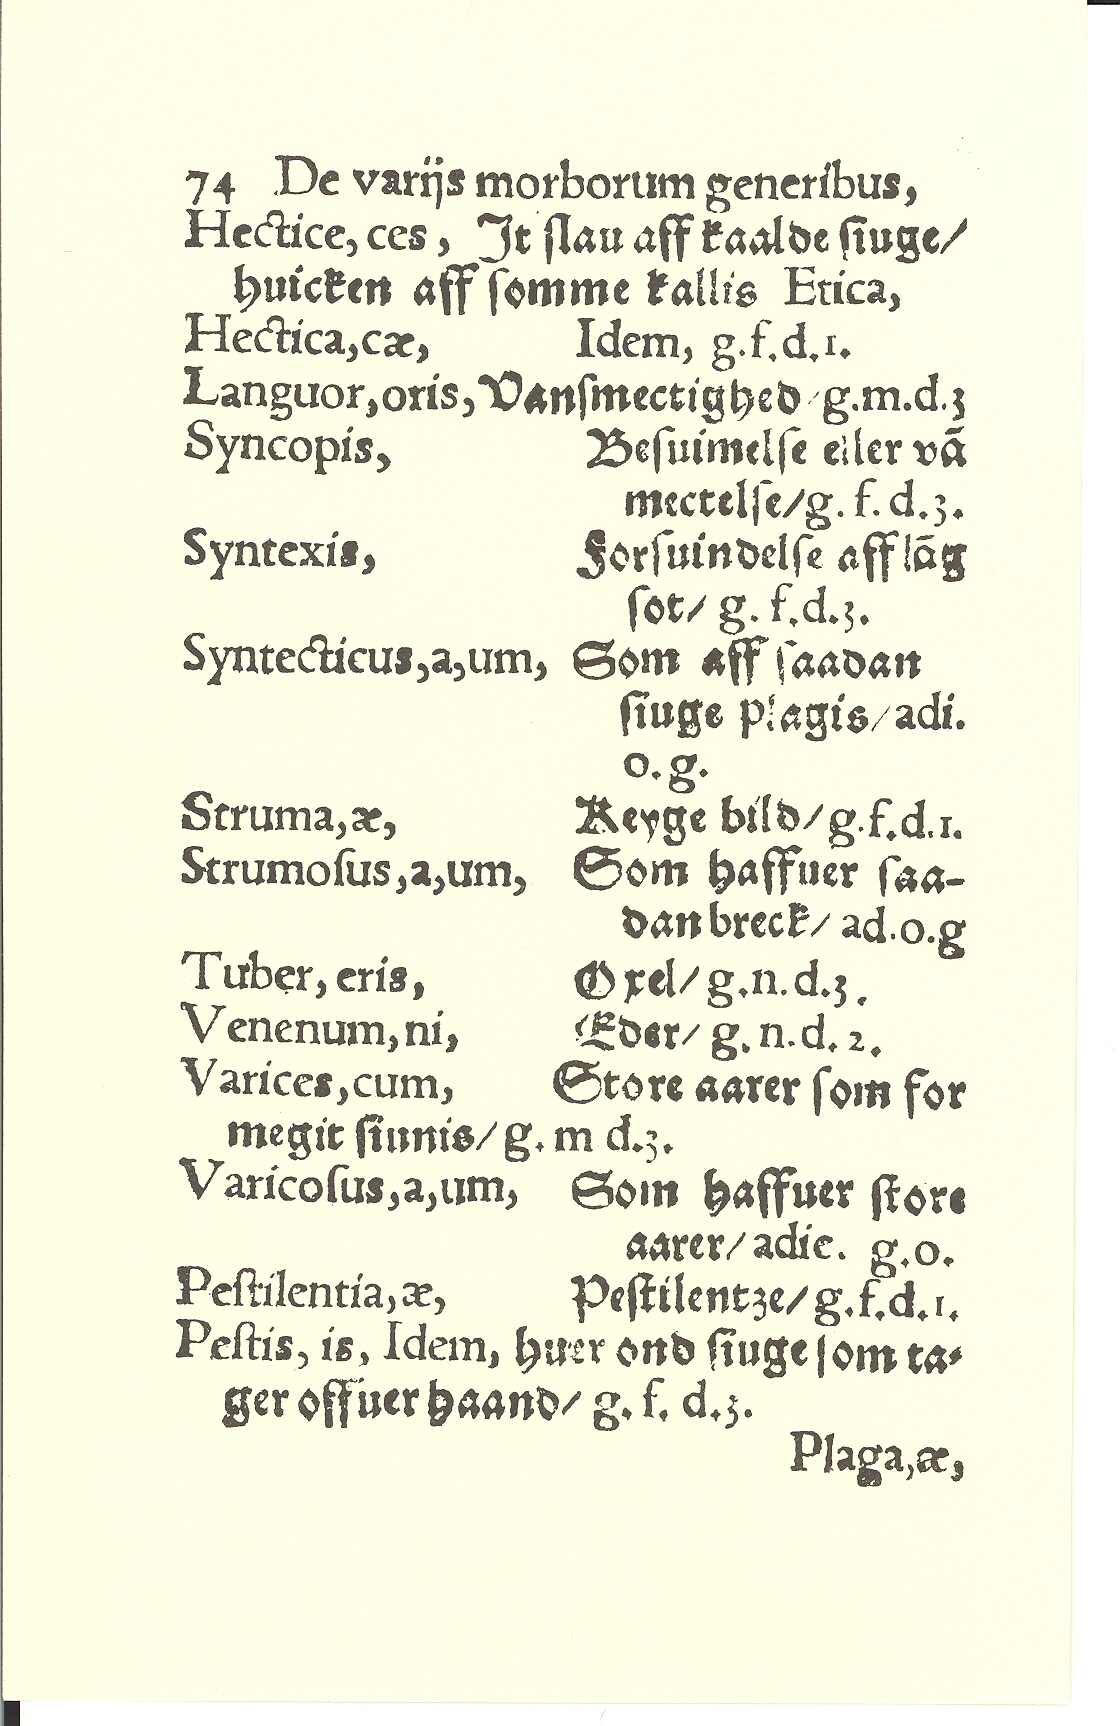 74 De varijs morborum generibus,
Hectice, ces, It slau aff kaalde siuge/
huicken aff somme kallis Etica,
Hectica, cæ, Idem, g.f.d.1.
Languor, oris, Vanſmectighed/g.m.d.3
Syncopis, Beſuimelſe eller vā
mectelſe/g. f. d.3.
Syntexis, Forſuindelſe aff lāg
ſot/ g. f.d.3.
Syntecticus,a,um, Som aff ſaadan
ſiuge plagis/adi.
o.g.
Struma,æ, Keyge bild/g.f.d.1.
Strumoſus,a,um, Som haffuer ſaa-
dan breck/ ad.o.g
Tuber, eris, Oxel/g.n.d.3.
Venenum,ni, Eder/ g.n.d.2.
Varices,cum, Store aarer ſom for
megit ſiunis/g. m d.3.
Varicoſus,a,um, Som haffuer ſtore
aarer/adie. g.o.
Peſtilentia,æ, Peſtilentze/g.f.d.1.
Peſtis, is, Idem, huer ond ſiuge ſom ta-
ger offuer haand/ g. f. d.3.
Plaga,æ,